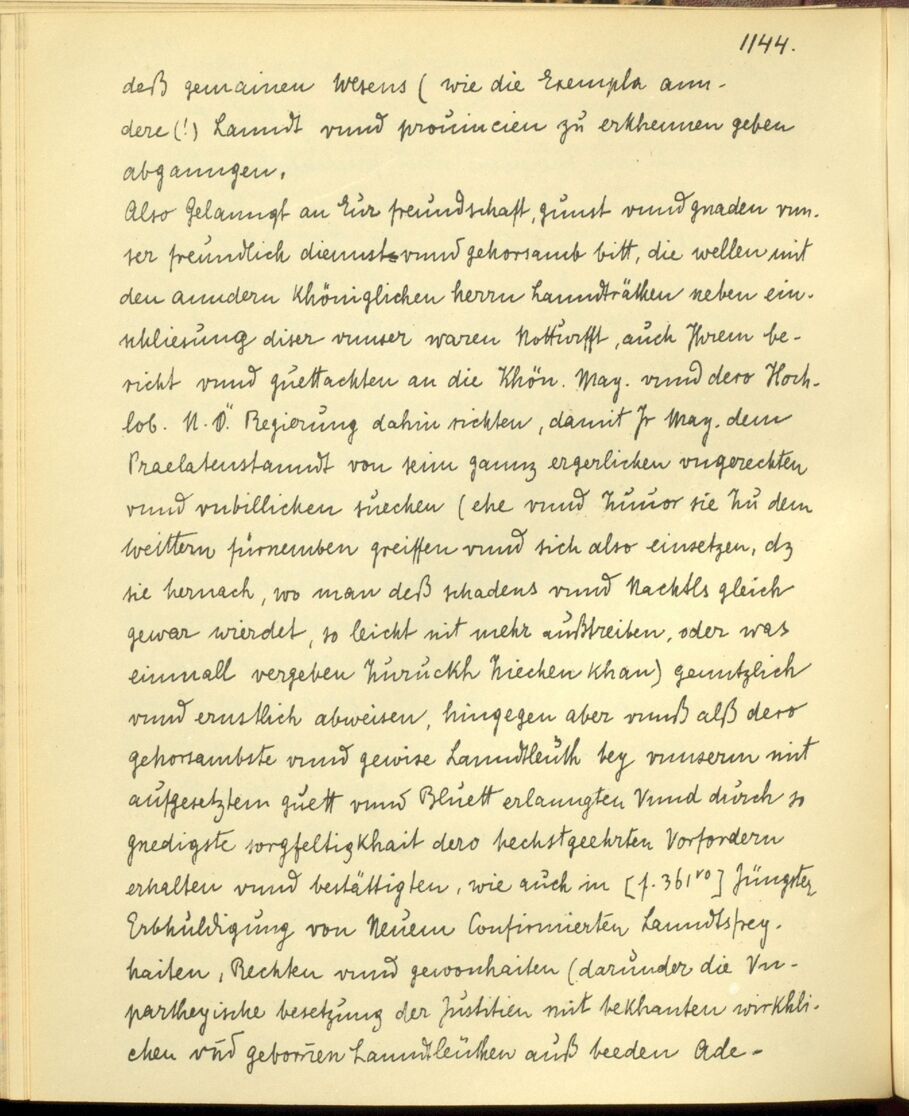 1144.
deß gemainen Wesens ( wie die Exempla ann-
dere (!) Lanndt vnnd prouincien zu erkhennen geben
abganngen.
Also Gelanngt an Eur freundschaft, gunst vnnd gnaden vnn-
ser freundlich diennst- vnnd gehorsamb bitt, die wellen mit
den anndern Khöniglichen herrn Lanndträthen neben ein-
schliesung diser vnnser waren Notturfft, auch Ihrem be-
richt vnnd guettachten an die Khön. May. vnnd dero Hoch-
lob. N. Ö. Regierung dahin richten, damit Ir May. dem
Praelatenstanndt von seim gannz ergerlichen vngerechten
vnnd vnbillichen suechen ( ehe vnnd zuuor sie zu dem
weittern fürnemben greiffen vnnd sich also einsetzen, dz
sie hernach, wo man deß schadens vnnd Nachtls gleich
gewar wierdet, so leicht nit mehr außtreiben, oder was
einmall vergeben zuruckh ziechen khan) genntzlich
vnnd ernstlich abweisen, hingegen aber vnnß alß dero
gehorsambste vnnd gewise Lanndtleüth bey vnnserm mit
aufgesetztem guett vnnd Bluett erlanngten Vnnd durch so
gnedigste sorgfeltigkhait dero hechstgeehrten Vorfordern
erhalten vnnd bestättigten, wie auch in [f. 361ro] Jüngster
Erbhuldigung von Neuem Confirmierten Lanndtsfrey-
haiten, Rechten vnnd gewonhaiten (darunder die Vn-
partheyische besetzung der Justitien mit bekhanten wirkhli-
chen vn̄d gebornen Lanndtleüthen auß beeden Ade-